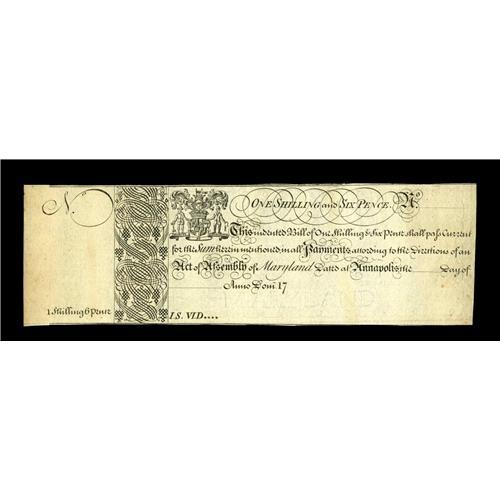 N.
ONE SHILLING and SIX PENCE. No.
This indented Bill of One Shilling & Six Pence shall pass Current
for the Sum herein mentioned, in all Payments according to the Directions of an
Act of Assembly of Maryland Dated at Annapolis the Day of
Anno Dom. 17
1 Shilling 6 Pence
1 S. VI D....